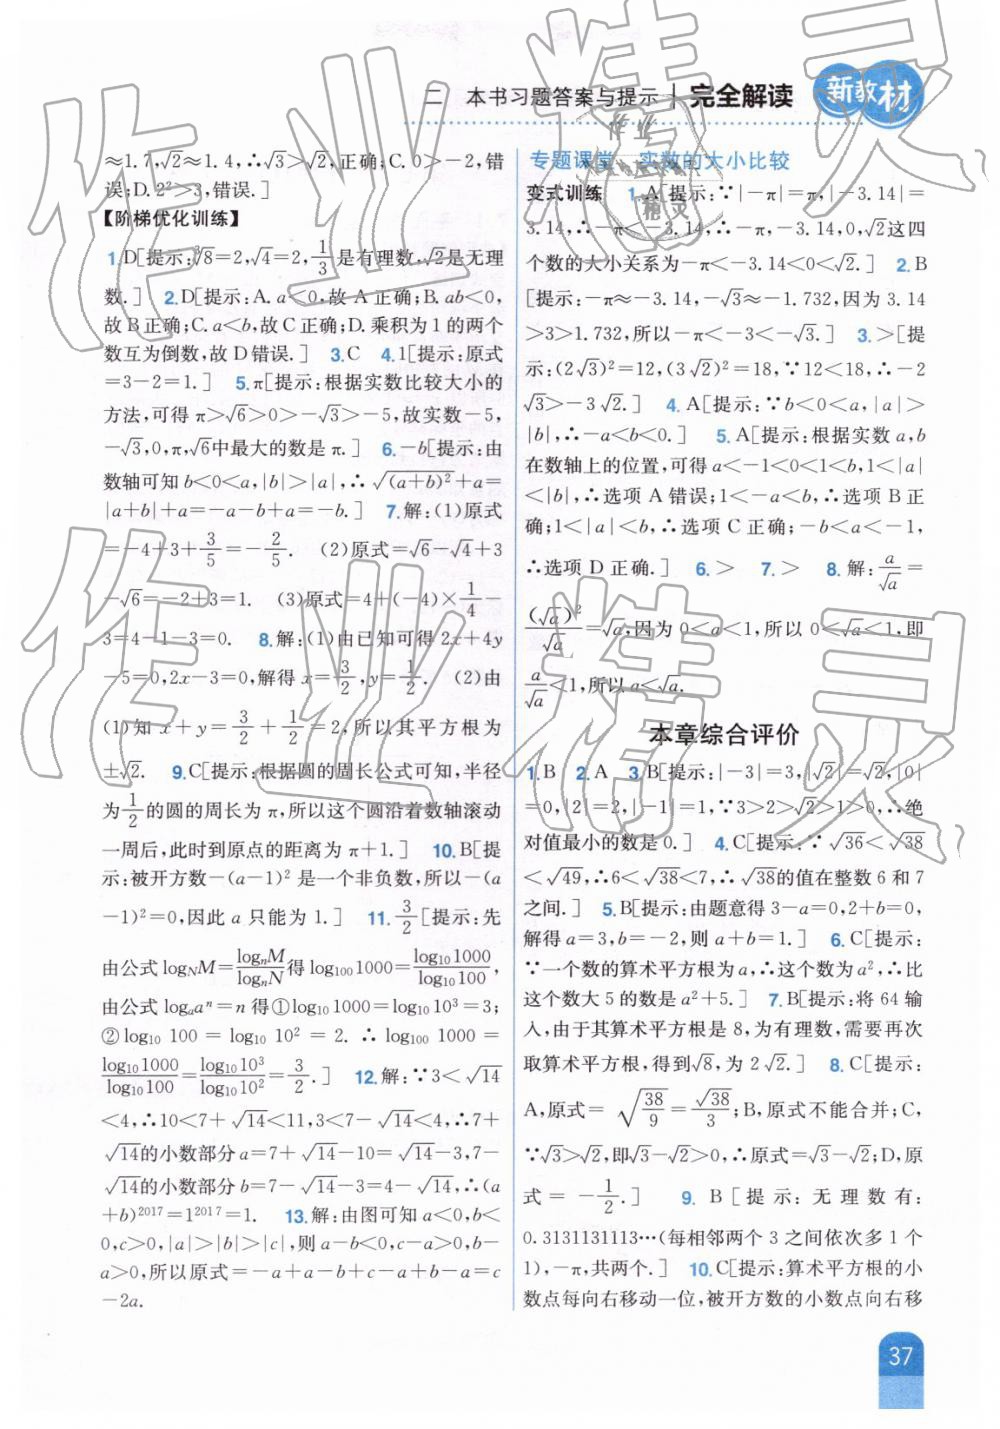 二 本书习题答案与提示 | 完全解读 新教材
≈1.7,√2≈1.4,∴√3>√2,正确;C.0>-2,错
误;D.2²>3,错误.]
【阶梯优化训练】
1.D[提示:∛8=2,√4=2,1/3是有理数,√2是无理
数.] 2.D[提示:A.a<0,故A正确;B.ab<0,
故B正确;C.a<b,故C正确;D.乘积为1的两个
数互为倒数,故D错误.] 3.C 4.1[提示:原式
=3-2=1.] 5.π[提示:根据实数比较大小的
方法,可得π>√6>0>-√3>-5,故实数-5,
-√3,0,π,√6中最大的数是π.] 6.-b[提示:由
数轴可知b<0<a,|b|>|a|,∴√(a+b)²+a=
|a+b|+a=-a-b+a=-b.] 7.解:(1)原式
=-4+3+3/5=-2/5. (2)原式=√6-√4+3
-√6=-2+3=1. (3)原式=4+(-4)×1/4-
3=4-1-3=0. 8.解:(1)由已知可得2x+4y
-5=0,2x-3=0,解得x=3/2,y=1/2. (2)由
(1)知x+y=3/2+1/2=2,所以其平方根为
±√2. 9.C[提示:根据圆的周长公式可知,半径
为1/2的圆的周长为π,所以这个圆沿着数轴滚动
一周后,此时到原点的距离为π+1.] 10.B[提
示:被开方数-(a-1)²是一个非负数,所以-(a
-1)²=0,因此a只能为1.] 11.3/2[提示:先
由公式log_N M=log_n M/log_n N得log₁₀₀1000=log₁₀1000/log₁₀100,
由公式log_a aⁿ=n得①log₁₀1000=log₁₀10³=3;
②log₁₀100=log₁₀10²=2.∴log₁₀₀1000=
log₁₀1000/log₁₀100=log₁₀10³/log₁₀10²=3/2.] 12.解:∵3<√14
<4,∴10<7+√14<11,3<7-√14<4,∴7+
√14的小数部分a=7+√14-10=√14-3,7-
√14的小数部分b=7-√14-3=4-√14,∴(a
+b)²⁰¹⁷=1²⁰¹⁷=1. 13.解:由图可知a<0,b<
0,c>0,|a|>|b|>|c|,则a-b<0,c-a>0,b-
a>0,所以原式=-a+a-b+c-a+b-a=c
-2a.
专题课堂 实数的大小比较
变式训练 1.A[提示:∵|-π|=π,|-3.14|=
3.14,∴-π<-3.14,∴-π,-3.14,0,√2这四
个数的大小关系为-π<-3.14<0<√2.] 2.B
[提示:-π≈-3.14,-√3≈-1.732,因为3.14
>3>1.732,所以-π<-3<-√3.] 3.>[提
示:(2√3)²=12,(3√2)²=18,∵12<18,∴-2
√3>-3√2.] 4.A[提示:∵b<0<a,|a|>
|b|,∴-a<b<0.] 5.A[提示:根据实数a,b
在数轴上的位置,可得a<-1<0<1<b,1<|a|
<|b|,∴选项A错误;1<-a<b,∴选项B正
确;1<|a|<b,∴选项C正确;-b<a<-1,
∴选项D正确.] 6.> 7.> 8.解:a/√a=
(√a)²/√a=√a,因为0<a<1,所以0<√a<1,即
a/√a<1,所以a<√a.
本章综合评价
1.B 2.A 3.B[提示:|-3|=3,|√2|=√2,|0|
=0,|2|=2,|-1|=1,∵3>2>√2>1>0,∴绝
对值最小的数是0.] 4.C[提示:∵√36<√38
<√49,∴6<√38<7,∴√38的值在整数6和7
之间.] 5.B[提示:由题意得3-a=0,2+b=0,
解得a=3,b=-2,则a+b=1.] 6.C[提示:
∵一个数的算术平方根为a,∴这个数为a²,∴比
这个数大5的数是a²+5.] 7.B[提示:将64输
入,由于其算术平方根是8,为有理数,需要再次
取算术平方根,得到√8,为2√2.] 8.C[提示:
A,原式=√38/9=√38/3;B,原式不能合并;C,
∵√3>√2,即√3-√2>0,∴原式=√3-√2;D,原
式=-1/2.] 9.B[提示:无理数有:
0.3131131113⋯(每相邻两个3之间依次多1个
1),-π,共两个.] 10.C[提示:算术平方根的小
数点每向右移动一位,被开方数的小数点向右移
37
作业精灵
作业精灵
作业
精灵